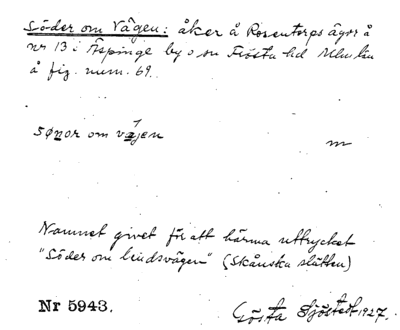 Söder om Vägen: åker å Rosentorps ägor å
nr 13 i Äspinge by o sn Frosta hd Mlm län
å fig. num. 69.
sønor om vajen
m
Namnet givet för att härma uttrycket
"Söder om landsvägen" (Skånska slätten)
Nr 5943.
Gösta Sjöstedt 1927.